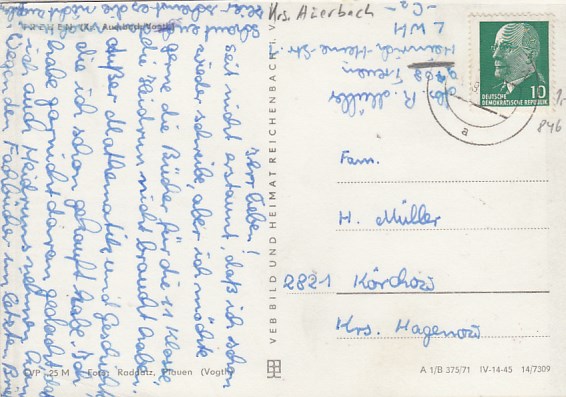 TREUEN (Kr. Auerbach/Vogtl.)
Ihr Lieben!
seit nicht erstaunt, daß ich schon
wieder schreibe, aber ich möchte
gerne die Bücher für die 11 Klasse,
die Heidrun nicht braucht haben.
außer Mathematik und Geschichte,
die ich schon gekauft habe. Ich
habe garnicht daran gedacht,
ich auch Heidruns nehmen kann
Wegen den Fachbücher im letzten Brief
Krs. Auerbach
Abs. R. Müller
Treuen
Heinrich-Heine-Str.
LWH
DEUTSCHE
DEMOKRATISCHE REPUBLIK
10
a
846
Fam.
H. Müller
2821 Körchow
Krs. Hagenow
VEB BILD UND HEIMAT REICHENBACH I. V.
EVP 25 M Foto: Raddatz, Plauen (Vogtl.)
A 1/B 375/71 IV-14-45 14/7309